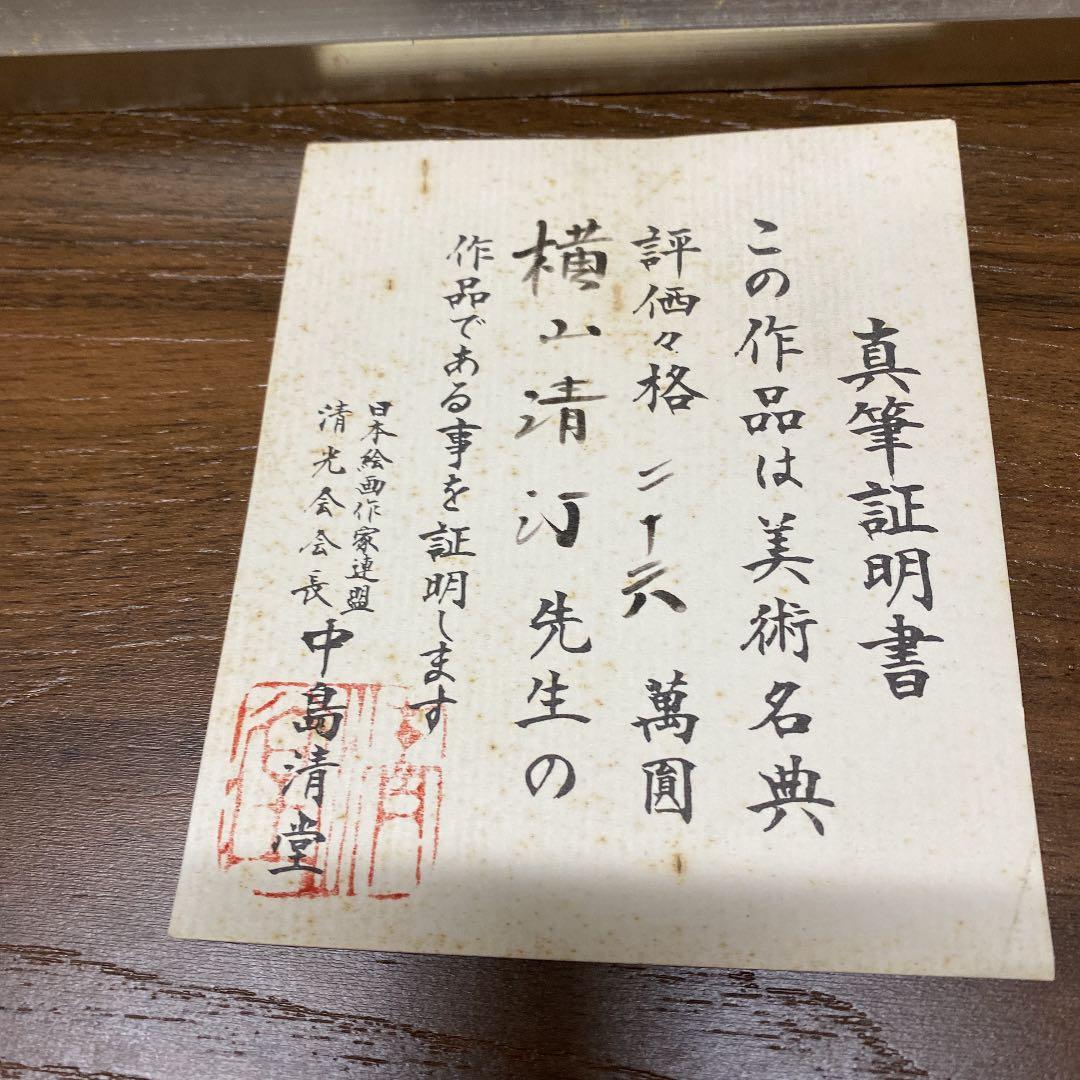 真筆証明書
この作品は美術名典
評価々格 二十六 萬圓
横山清汀先生の
作品である事を証明します
日本絵画作家連盟
清光会会長 中島清堂